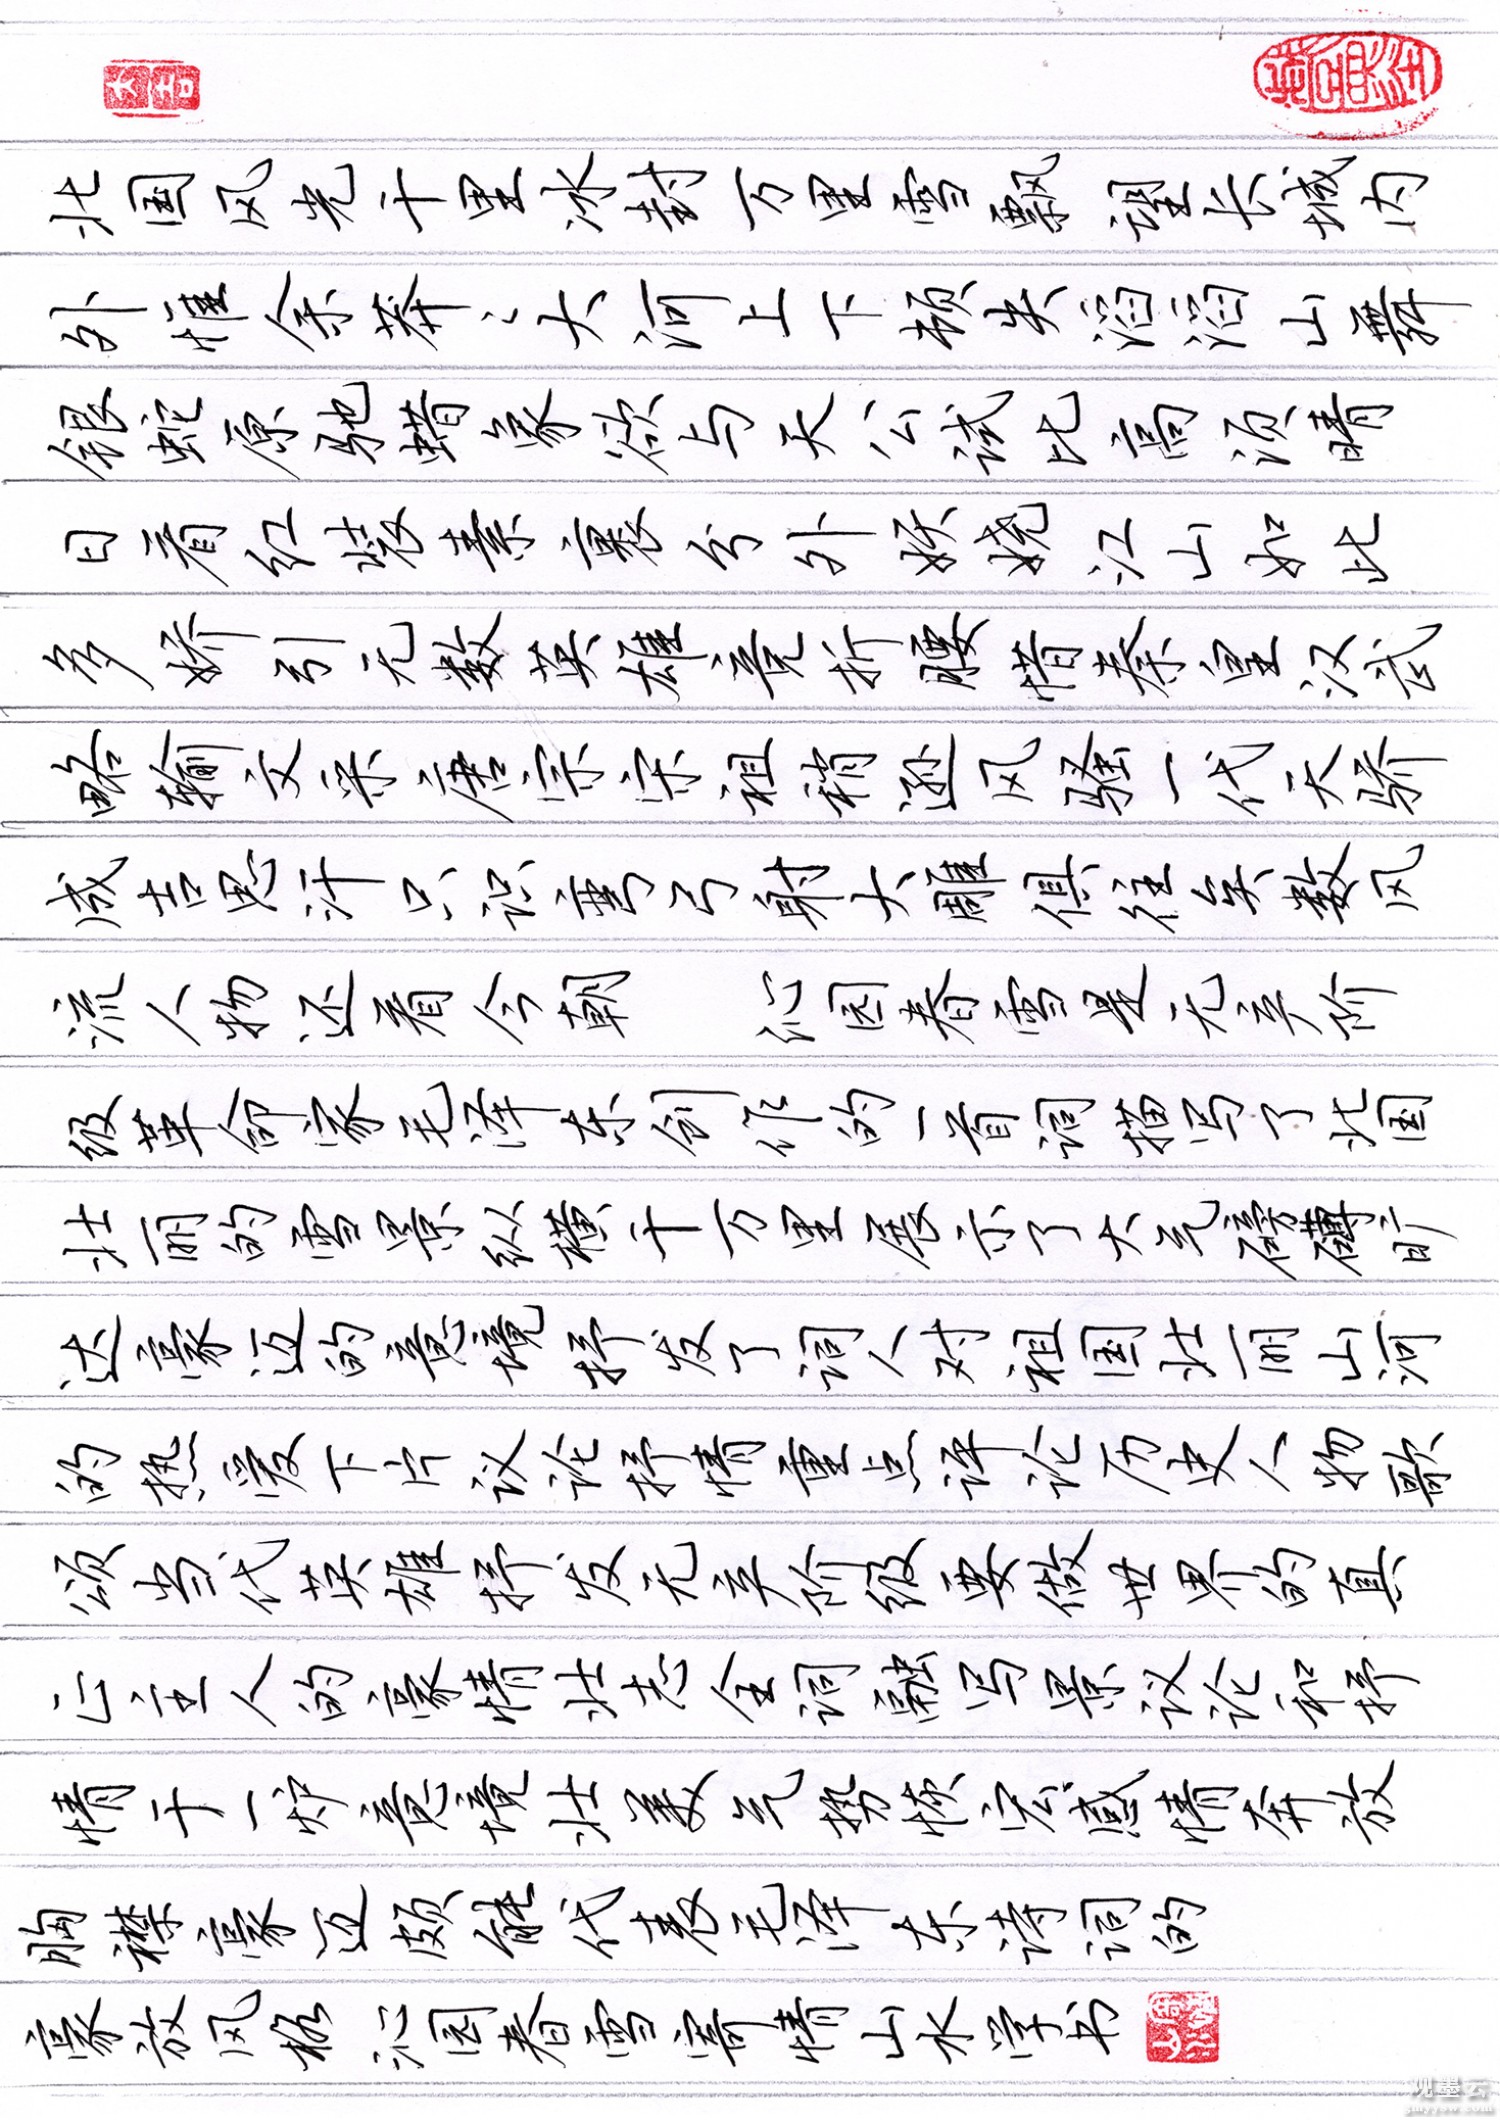 大吉
北国风光千里冰封万里雪飘望长城内
外惟余莽々大河上下顿失滔滔山舞
银蛇原驰蜡象欲与天公试比高须晴
日看红装素裹分外妖娆江山如此
多娇引无数英雄竞折腰惜秦皇汉武
略输文采唐宗宋祖稍逊风骚一代天骄
成吉思汗只识弯弓射大雕俱往矣数风
流人物还看今朝 沁园春雪是无产阶
级革命家毛泽东创作的一首词描写了北国
壮丽的雪景纵横千万里展示了大气磅礴旷
达豪迈的意境抒发了词人对祖国壮丽山河
的热爱下片议论抒情重点评论历史人物歌
颂当代英雄抒发无产阶级要做世界的真
正主人的豪情壮志全词融写景议论和抒
情于一炉意境壮美气势恢宏感情奔放
胸襟豪迈颇能代表毛泽东诗词的
豪放风格 沁园春雪寄情山水学书
观墨云